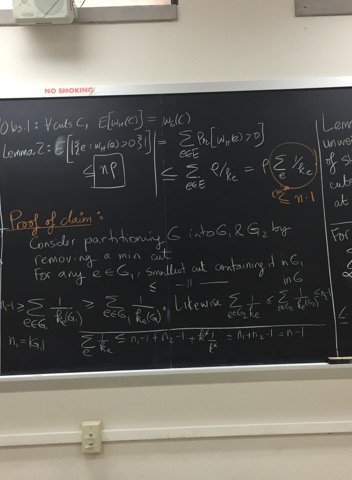 NO SMOKING
Obs.1: ∀ cuts C, E[w_H(C)] = w_G(C)
Lemma 2: E[|{e: w_H(e)>0}|] = Σ_{e∈E} Pr[w_H(e)>0]
≤ nρ ≤ Σ_{e∈E} ρ/k_e = ρ Σ_e 1/k_e
claim
≤ n-1
Proof of claim:
Consider partitioning G into G₁ & G₂ by
removing a min cut
For any e∈G₁, smallest cut containing it in G₁
≤ —||— in G
n₁-1 ≥ Σ_{e∈G₁} 1/k_e(G₁) ≥ Σ_{e∈G₁} 1/k_e(G). Likewise Σ_{e∈G₂} 1/k_e ≤ Σ_{e∈G₂} 1/k_e(G₂) ≤ n₂-1
n₁=|G₁| Σ_e 1/k_e ≤ n₁-1+n₂-1+k* 1/k* = n₁+n₂-1 = n-1
Lem
unwei
of s
cuts
at
For
≤